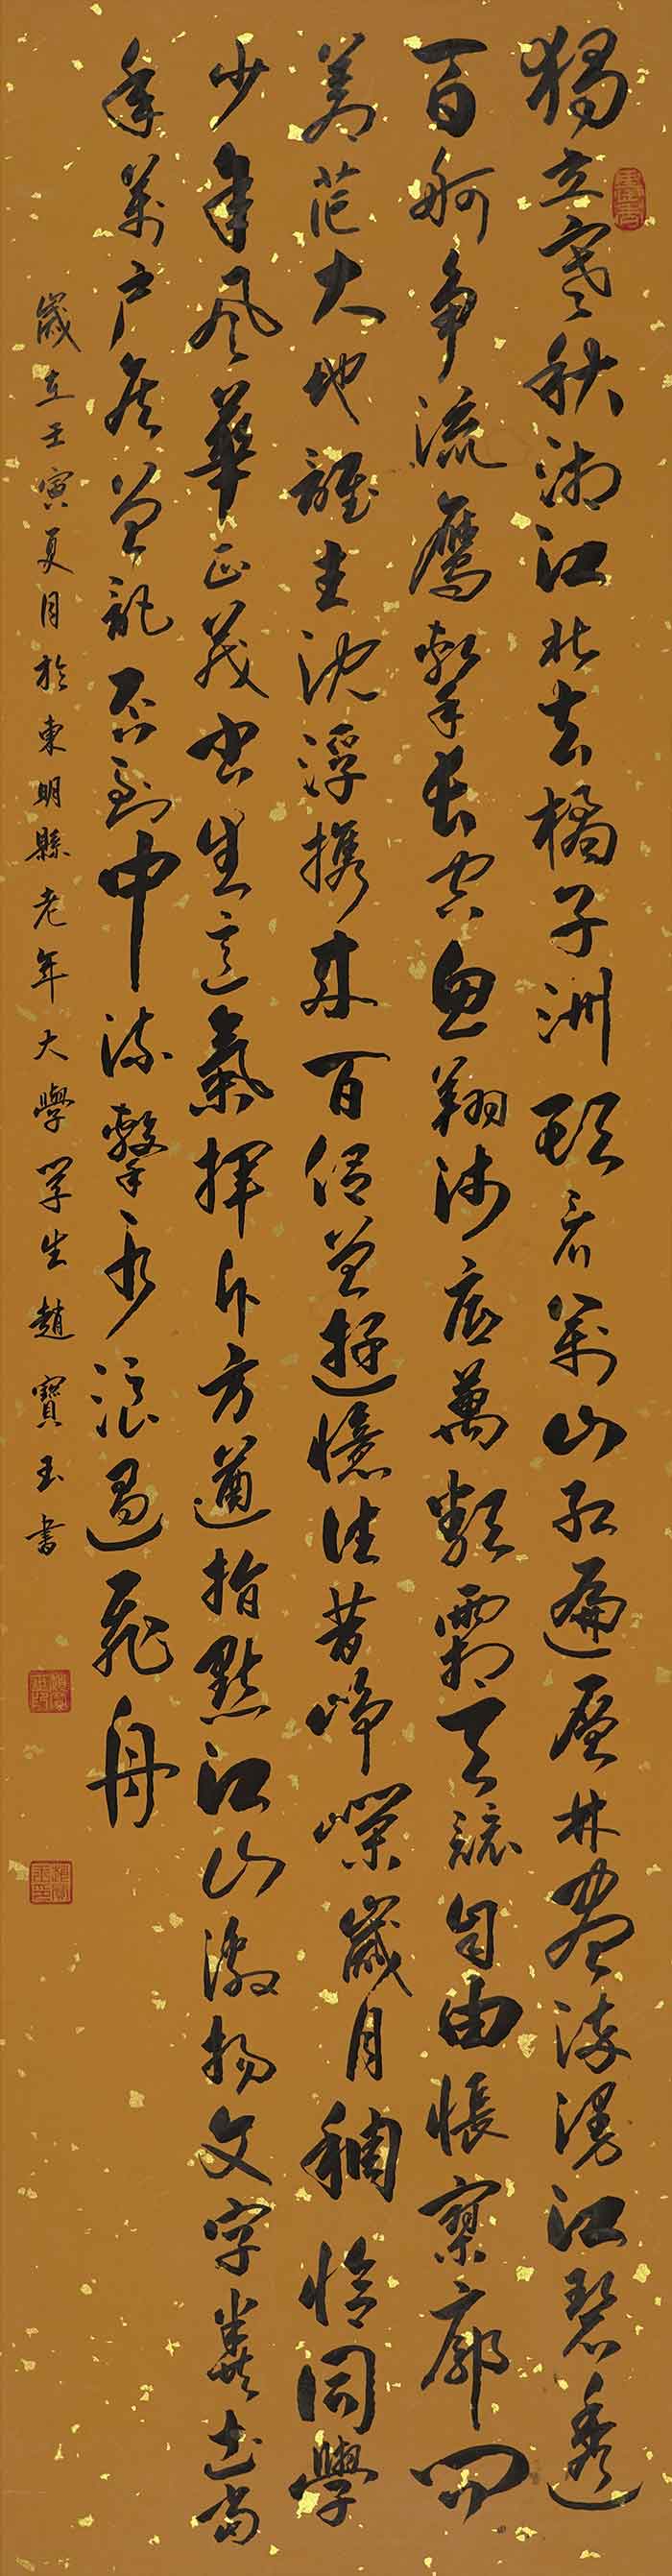 獨立寒秋湘江北去橘子洲頭看萬山紅遍層林盡染漫江碧透
百舸争流鷹擊長空魚翔淺底萬類霜天競自由悵寥廓問
蒼茫大地誰主沈浮携來百侣曾遊憶往昔崢嶸歲月稠恰同學
少年风華正茂書生意氣揮斥方遒指點江山激揚文字糞土當
年萬户侯曾記否到中流擊水浪遏飛舟
歲在壬寅夏月於東明縣老年大學學生趙寶玉書